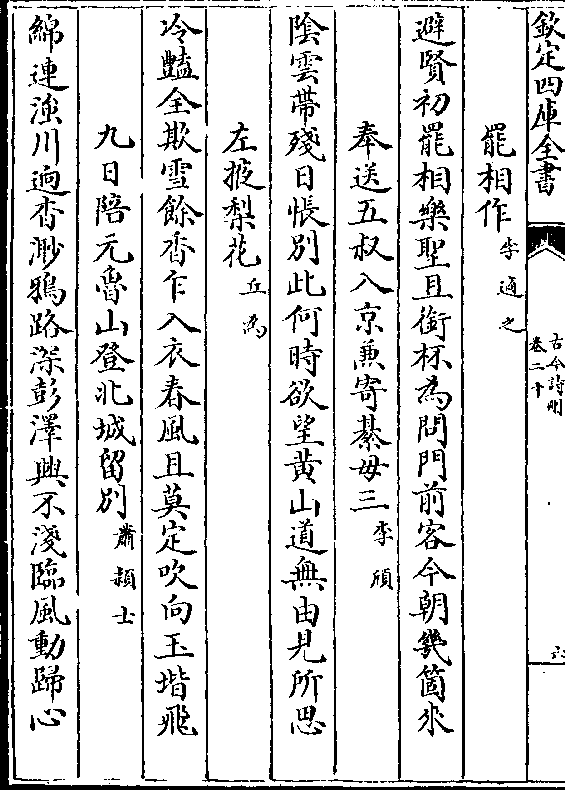 欽定四庫全書
古今詩刪
卷二十
六
罷相作 李適之
避賢初罷相樂聖且銜杯為問門前客今朝幾箇來
奉送五叔入京兼寄綦毋三 李頎
陰雲帶殘日悵別此何時欲望黄山道無由見所思
左掖梨花 丘為
冷豔全欺雪餘香乍入衣春風且莫定吹向玉堦飛
九日陪元魯山登北城留別 蕭穎士
綿連滍川逈杳渺鴉路深彭澤興不淺臨風動歸心